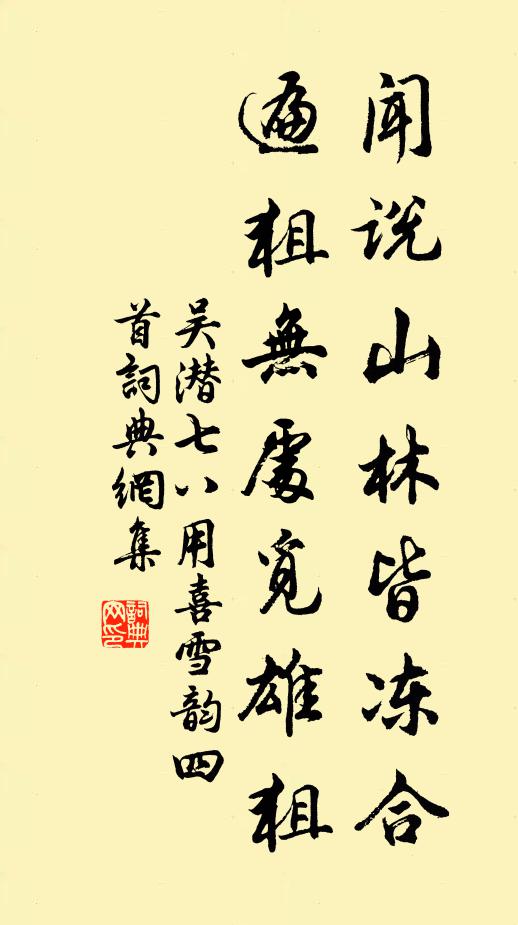 闻说山林皆冻合
遍粗無處覓雄粗
吴潜七八用喜雪韵四
首詞典網集
詞典網印